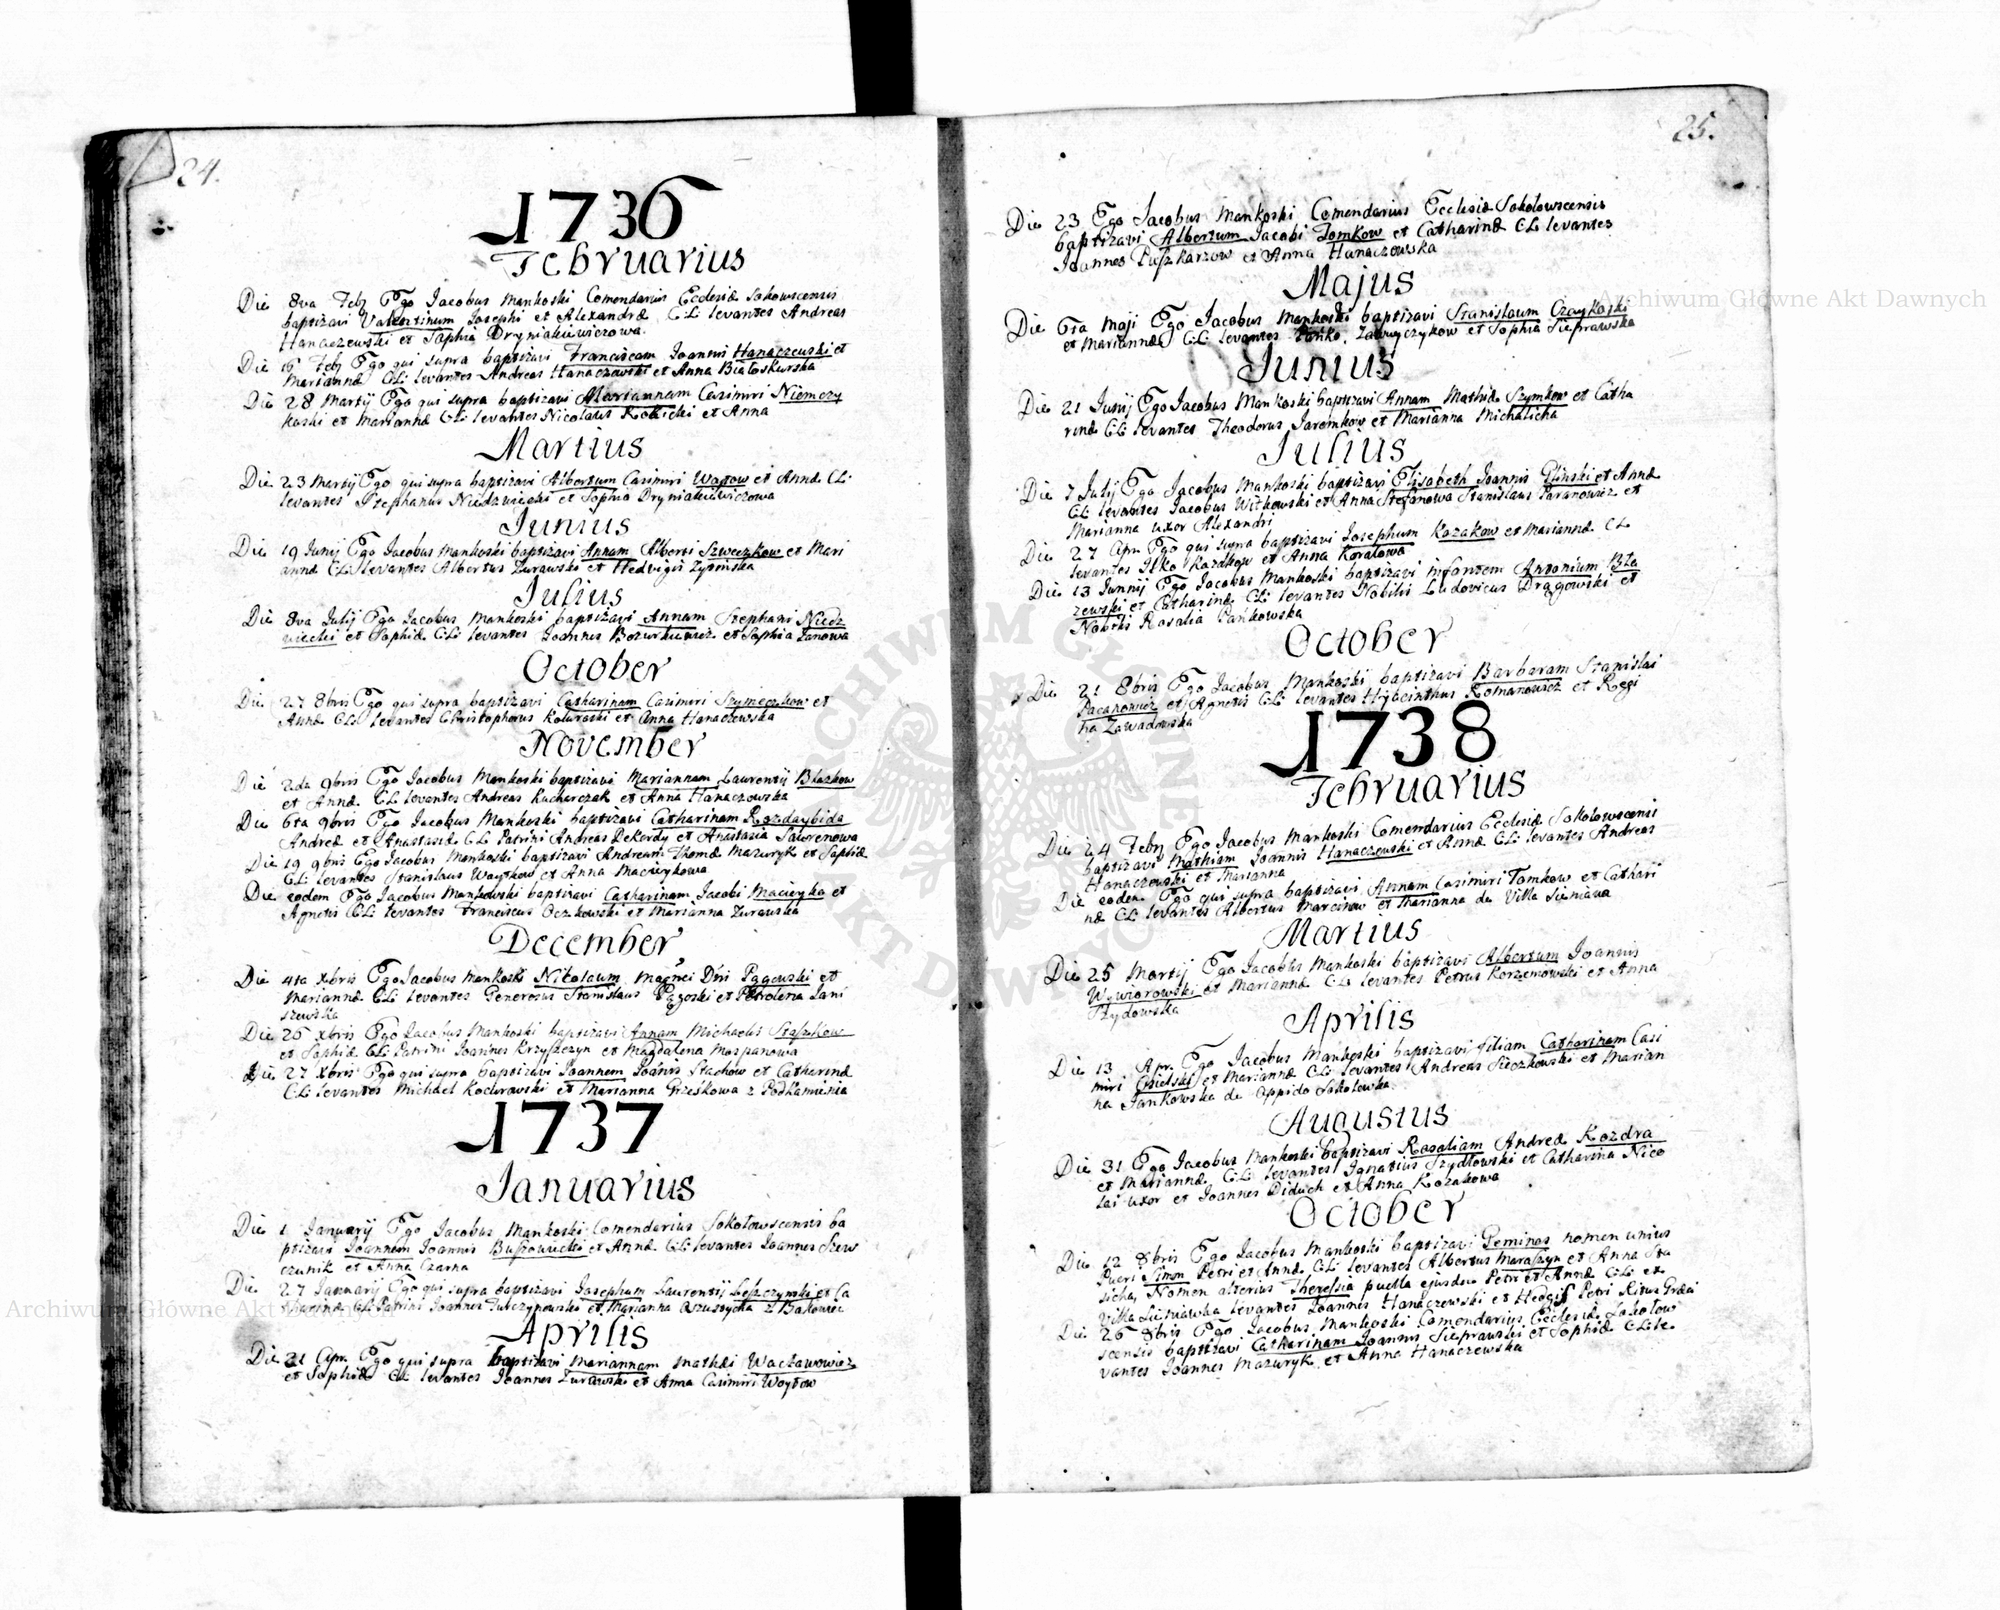 24.
1736
Februarius
Die 8va Febr Ego Jacobus Mankoski Comendarius Ecclesiæ Sokowscensis
baptizavi Valentinum Josephi et Alexandræ C:L: levantes Andreas
Hanaczewski et Sophia Dryniakiewiczowa.
Die 16 Febr Ego qui supra baptizavi Franciscam Joannis Hanaczewski et
Mariannæ C:L: levantes Andreas Hanaczowski et Anna Białoskurska
Die 28 Martij Ego qui supra baptizavi Mariannam Casimiri Niemczy
koski et Mariannæ C:L: levantes Nicolaus Robicki et Anna
Martius
Die 23 Martij Ego qui supra baptizavi Albertum Casimiri Woytow et Annæ C:L:
levantes Stephanus Niedzwiecki et Sophia Dryniakiewiczowa
Junius
Die 19 Junij Ego Jacobus Mankoski baptizavi Annam Alberti Szweczkow et Mari
annæ C:L: levantes Albertus Zurawski et Hedvigis Zysinska
Julius
Die 8va Julij Ego Jacobus Mankoski baptizavi Annam Stephani Niedz
wiecki et Sophiæ C:L: levantes Joannes Bozurkiewicz et Sophia Janowa
October
Die 27 8bris Ego qui supra baptizavi Catharinam Casimiri Szymeczkow et
Annæ C:L: levantes Christophorus Kolwraski et Anna Hanaczewska
November
Die 2da 9bris Ego Jacobus Mankoski baptizavi Mariannam Laurentij Blazkow
et Annæ C:L: levantes Andreas Kucharczak et Anna Hanaczowska
Die 6ta 9bris Ego Jacobus Mankoski baptizavi Catharinam Rozdaybida
Andreæ et Anastasiæ C:L: Patrini Andreas Dekerdy et Anastasia Sawrenowa
Die 19 9bris Ego Jacobus Mankoski baptizavi Andream Thomæ Mazuryk et Sophiæ
C:L: levantes Stanislaus Woytkow et Anna Macieykowa
Die eodem Ego Jacobus Mankowski baptizavi Catharinam Jacobi Macieyka et
Agnetis C:L: levantes Franciscus Oczkowski et Marianna Zurawska
December
Die 4ta Xbris Ego Jacobus Mankoski Nikolaum Magnci Dñi Pągowski et
Mariannæ C:L: levantes Generosus Stanislaus Pągoski et Petrolena Jani
szewska
Die 26 Xbris Ego Jacobus Mankoski baptizavi Annam Michaelis Staszkow
et Sophiæ C:L: Patrini Joannes Krzyszczyn et Magdalena Mospanowa
Die 27 Xbris Ego qui supra baptizavi Joannem Joannis Stachow et Catharinæ
C:L: levantes Michael Kociurawski et Marianna Grzeskowa z Podkamienia
1737
Januarius
Die 1 Januarij Ego Jacobus Mankoski Comendarius Sokołowscensis ba
ptizavi Joannem Joannis Buszowiecki et Annæ C:L: levantes Joannes Szew
czunik et Anna Czarna
Die 27 Januarij Ego qui supra baptizavi Josephum Laurentij Leszczynski et Ca
tharinæ C:L: Patrini Joannes Tulczynowski et Marianna Oszustycha z Bakowiec
Aprilis
Die 21 Apr. Ego qui supra baptizavi Mariannam Mathæi Wacławowicz
et Sophiæ C:L: levantes Joannes Zurawski et Anna Casimiri Woytow
25.
Die 23 Ego Jacobus Mankoski Comendarius Ecclesiæ Sokołowscensis
baptizavi Albertum Jacobi Tomkow et Catharinæ C:L: levantes
Joannes Puszkarzow et Anna Hanaczowska
Majus
Die 6ta Maji Ego Jacobus Mankoski baptizavi Stanislaum Czaykoski
et Mariannæ C:L: levantes Pańko Zawryczykow et Sophia Sieprawska
Junius
Die 21 Junij Ego Jacobus Mankoski baptizavi Annam Mathiæ Szymkow et Catha
rinæ C:L: levantes Theodorus Jaremkow et Marianna Michalicha
Julius
Die 7 Julij Ego Jacobus Mankoski baptizavi Elisabeth Joannis Glinski et Annæ
C:L: levantes Jacobus Witkowski et Anna Stefanowa Stanislaus Paranowicz et
Marianna uxor Alexandri
Die 27 Apr. Ego qui supra baptizavi Josephum Kozakow et Mariannæ C:L:
levantes Ilko Kozakow et Anna Koralowa
Die 13 Junnij Ego Jacobus Mankoski baptizavi infantem Antonium Bła
zewski et Catharinæ C:L: levantes Nobilis Ludovicus Drągowski et
Nobilis Rosalia Pańkowska
October
Die 21 8bris Ego Jacobus Mankoski baptizavi Barbaram Stanislai
Pacanowicz et Agnetis C:L: levantes Hyacinthus Romanowicz et Regi
na Zawadowska
1738
Februarius
Die 24 Febr Ego Jacobus Mankoski Comendarius Ecclesiæ Sokolowscensi
baptizavi Mathiam Joannis Hanaczewski et Annæ C:L: levantes Andreas
Hanaczowski et Marianna
Die eodem Ego qui supra baptizavi Annam Casimiri Tomkow et Cathari
næ C:L: levantes Albertus Marcinow et Marianna de Villa Sieniawa
Martius
Die 25 Martij Ego Jacobus Mankoski baptizavi Albertum Joannis
Wywiorowski et Mariannæ C:L: levantes Petrus Korzeniowski et Anna
Szydowska
Aprilis
Die 13 Apr. Ego Jacobus Mankoski baptizavi filiam Catharinam Casi
miri Cisielski et Mariannæ C:L: levantes Andreas Sieczkowski et Marian
na Jankowska de Oppido Sokołowka
Augustus
Die 31 Ego Jacobus Mankoski baptizavi Rosaliam Andreæ Kozdra
et Mariannæ C:L: levantes Ignatius Szydłowski et Catharina Nico
lai uxor et Joannes Diduch et Anna Kozakowa
October
Die 12 8bris Ego Jacobus Mankoski baptizavi Geminos nomen unius
Pueri Simon Petri et Annæ C:L: levantes Albertus Maraszyn et Anna Sta
sicha, Nomen alterius Theressia puella ejusdem Petri et Annæ C:L: et
Villa Sieniawka levantes Joannes Hanaczewski et Hedvigis Petri Ritus Græci
Die 26 8bris Ego Jacobus Mankoski Comendarius Ecclesiæ Sokołow
scensis baptizavi Catharinam Joannis Sieprawski et Sophiæ C:L: le
vantes Joannes Mazuryk et Anna Hanaczewska
Archiwum Główne Akt Dawnych
ARCHIWUM GŁÓWNE AKT DAWNYCH
Archiwum Główne Akt Dawnych